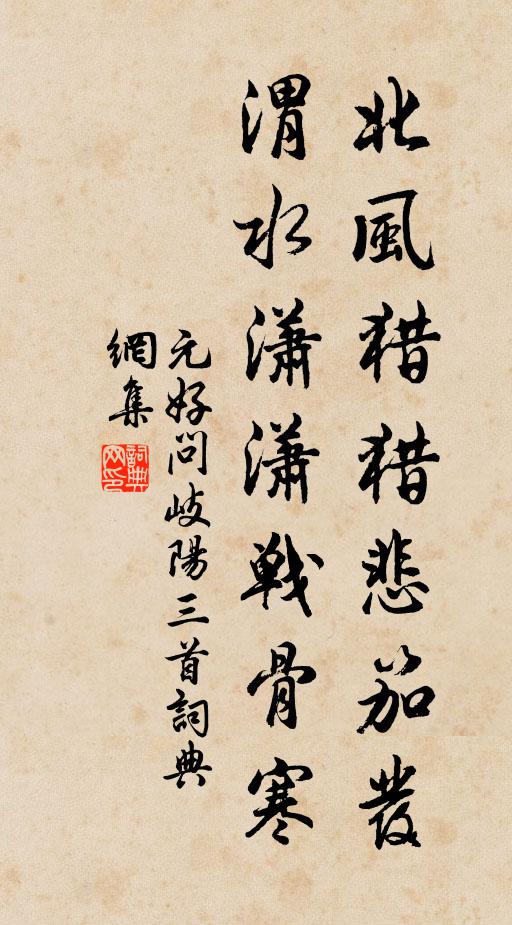 北風猎猎悲笳發
渭水瀟瀟戰骨寒
元好問岐陽三首詞典
網集
詞典
网印